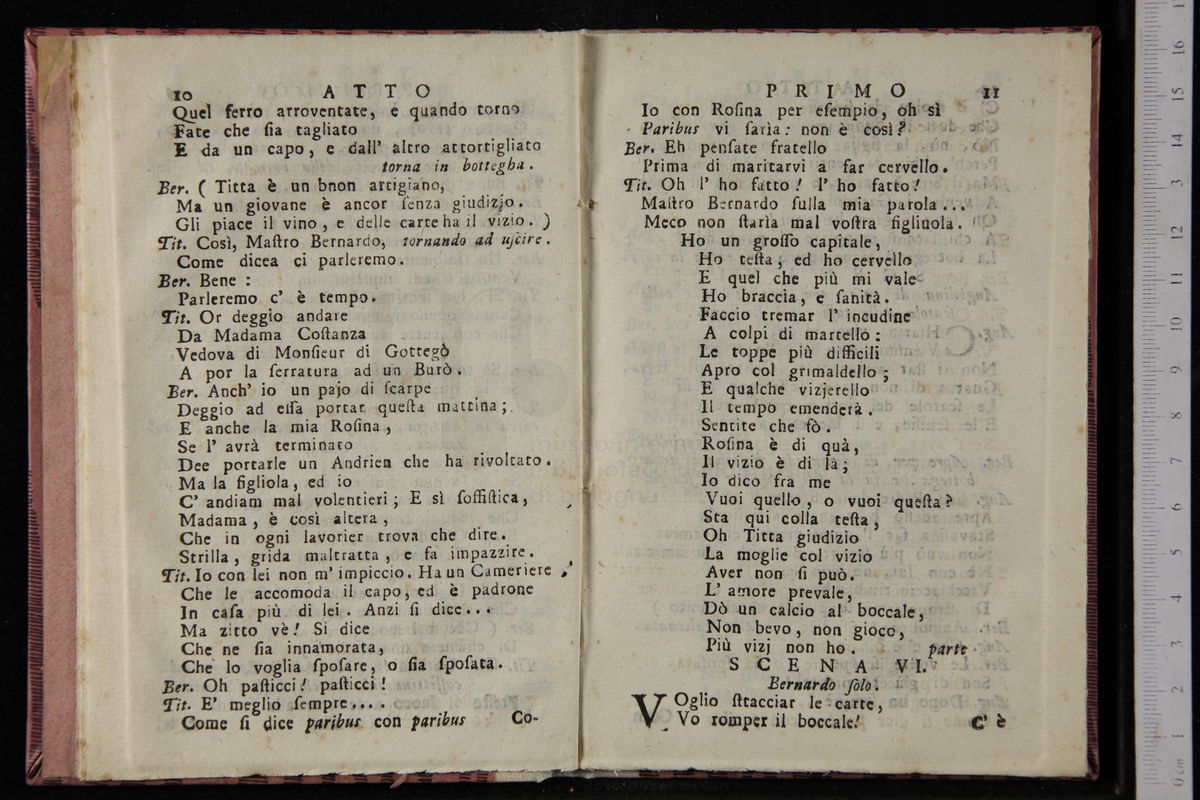 10 ATTO
Quel ferro arroventate, e quando torno
Fate che ſia tagliato
E da un capo, e dall' altro attortigliato
torna in bottegha.
Ber. ( Titta è un bnon artigiano,
Ma un giovane è ancor ſenza giudizjo.
Gli piace il vino, e delle carte ha il vizio. )
Tit. Così, Maſtro Bernardo, tornando ad uſcire.
Come dicea ci parleremo.
Ber. Bene :
Parleremo c' è tempo.
Tit. Or deggio andare
Da Madama Coſtanza
Vedova di Monſieur di Gottegò
A por la ſerratura ad un Burò.
Ber. Anch' io un pajo di ſcarpe
Deggio ad eſſa portar queſta mattina;
E anche la mia Roſina,
Se l' avrà terminato
Dee portarle un Andrien che ha rivoltato.
Ma la figliola, ed io
C' andiam mal volentieri; E sì ſoffiſtica,
Madama, è così altera,
Che in ogni lavorier trova che dire.
Strilla, grida maltratta, e fa impazzire.
Tit. Io con lei non m' impiccio. Ha un Cameriere
Che le accomoda il capo, ed è padrone
In caſa più di lei. Anzi ſi dice...
Ma zitto vè! Si dice
Che ne ſia innamorata,
Che lo voglia ſpoſare, o ſia ſpoſata.
Ber. Oh paſticci! paſticci!
Tit. E' meglio ſempre....
Come ſi dice paribus con paribus
Co-
PRIMO 11
Io con Roſina per eſempio, oh sì
Paribus vi ſarìa: non è così?
Ber. Eh penſate fratello
Prima di maritarvi a far cervello.
Tit. Oh l' ho fatto! l' ho fatto!
Maſtro Bernardo ſulla mia parola...
Meco non ſtarìa mal voſtra figliuola.
Ho un groſſo capitale,
Ho teſta, ed ho cervello
E quel che più mi vale
Ho braccia, e ſanità.
Faccio tremar l' incudine
A colpi di martello:
Le toppe più difficili
Apro col grimaldello;
E qualche vizjerello
Il tempo emenderà.
Sentite che fò.
Roſina è di quà,
Il vizio è di là;
Io dico fra me
Vuoi quello, o vuoi queſta?
Sta qui colla teſta,
Oh Titta giudizio
La moglie col vizio
Aver non ſi può.
L' amore prevale,
Dò un calcio al boccale,
Non bevo, non gioco,
Più vizj non ho. parte
SCENA VI.
Bernardo ſolo.
VOglio ſtracciar le carte,
Vo romper il boccale!
C' è